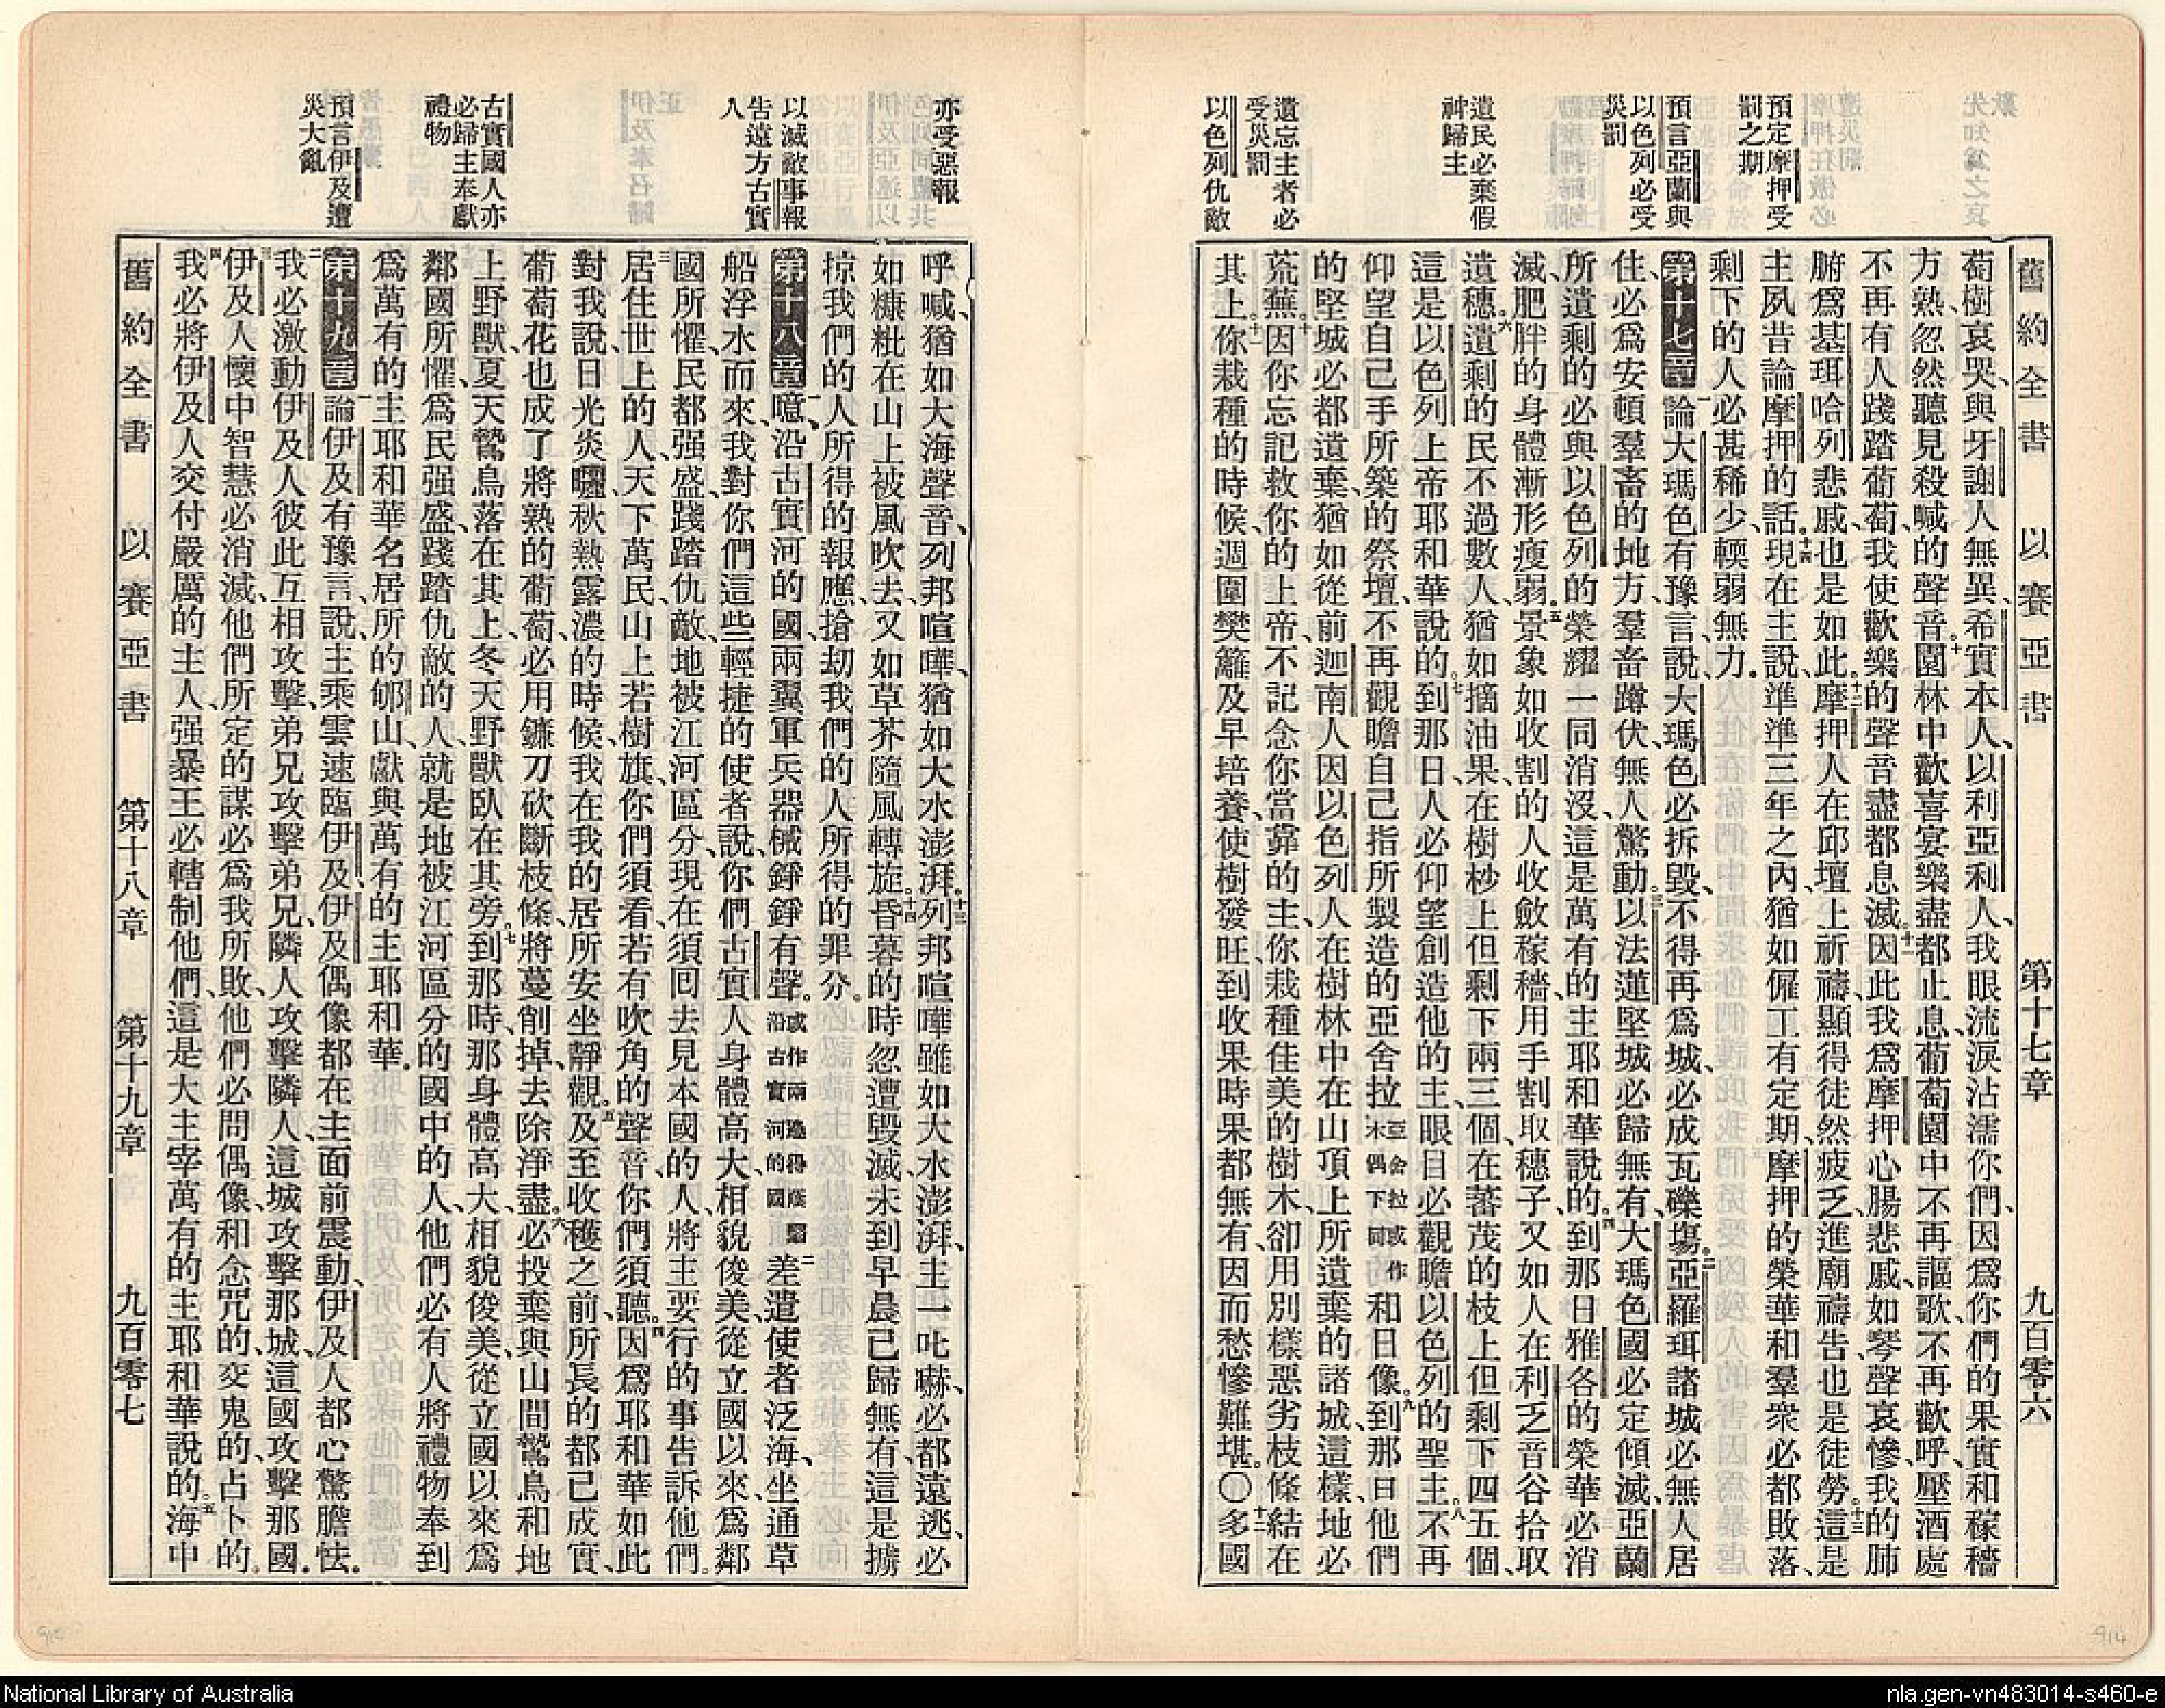 舊約全書 以賽亞書 第十七章 九百零六
預定摩押受
罰之期
預言亞蘭與
以色列必受
災罰
遺民必棄假
神歸主
遺忘主者必
受災罰
以色列仇敵
萄樹哀哭、與牙謝人無異、希實本人、以利亞利人、我眼流淚沾濡你們、因為你們的果實和稼穡
方熟、忽然聽見殺喊的聲音。十園林中歡喜宴樂盡都止息、葡萄園中不再謳歌、不再歡呼、壓酒處
不再有人踐踏葡萄、我使歡樂的聲音盡都息滅。十一因此我為摩押心腸悲戚、如琴聲哀慘、我的肺
腑為基珥哈列悲戚也是如此。十二摩押人在邱壇上祈禱、顯得徒然疲乏、進廟禱告也是徒勞。十三這是
主夙昔論摩押的話。十四現在主說、準準三年之內、猶如傭工有定期、摩押的榮華和羣衆必都敗落、
剩下的人必甚稀少、輭弱無力。
第十七章 一論大瑪色有豫言、說、大瑪色必拆毀、不得再為城、必成瓦礫塲。二亞羅珥諸城必無人居
住、必為安頓羣畜的地方、羣畜蹲伏、無人驚動。三以法蓮堅城必歸無有、大瑪色國必定傾滅、亞蘭
所遺剩的必與以色列的榮耀一同消沒、這是萬有的主耶和華說的。四到那日雅各的榮華必消
滅、肥胖的身體漸形瘦弱。五景象如收割的人收斂稼穡、用手割取穗子、又如人在利乏音谷拾取
遺穗。六遺剩的民不過數人、猶如摘油果、在樹杪上但剩下兩三個、在蕃茂的枝上但剩下四五個、
這是以色列上帝耶和華說的。七到那日、人必仰望創造他的主、眼目必觀瞻以色列的聖主。八不再
仰望自己手所築的祭壇、不再觀瞻自己指所製造的亞舍拉亞舍拉或作木偶下同和日像。九到那日他們
的堅城必都遺棄、猶如從前迦南人因以色列人在樹林中在山頂上所遺棄的諸城、這樣、地必
荒蕪。十因你忘記救你的上帝、不記念你當靠的主、你栽種佳美的樹木、卻用別樣惡劣枝條結在
其上。十一你栽種的時候、週圍樊籬、及早培養、使樹發旺、到收果時、果都無有、因而愁慘難堪。〇十二多國
亦受惡報
以滅敵事報
告遠方古實
人
古實國人亦
必歸主奉獻
禮物
預言伊及遭
災大亂
呼喊、猶如大海聲音、列邦喧嘩、猶如大水澎湃。十三列邦喧嘩雖如大水澎湃、主一叱嚇、必都遠逃、必
如糠粃在山上被風吹去、又如草芥隨風轉旋。十四昏暮的時忽遭毀滅、未到早晨已歸無有、這是擄
掠我們的人所得的報應、搶劫我們的人所得的罪分。
第十八章 一噫、沿古實河的國、兩翼軍兵器械錚錚有聲。或作兩邊得蔭翳沿古實河的國二差遣使者泛海、坐通草
船浮水而來、我對你們這些輕捷的使者說、你們古實人身體高大、相貌俊美、從立國以來、為鄰
國所懼、民都强盛、踐踏仇敵、地被江河區分、現在須回去見本國的人、將主要行的事告訴他們。
三居住世上的人、天下萬民、山上若樹旗、你們須看、若有吹角的聲音、你們須聽。四因為耶和華如此
對我說、日光炎曬、秋熱露濃的時候、我在我的居所安坐靜觀。五及至收穫之前、所長的都已成實、
葡萄花也成了將熟的葡萄、必用鐮刀砍斷枝條、將蔓削掉、去除淨盡。六必投棄與山間鷙鳥和地
上野獸、夏天鷙鳥落在其上、冬天野獸臥在其旁。七到那時、那身體高大、相貌俊美、從立國以來為
鄰國所懼、為民强盛、踐踏仇敵的人、就是地被江河區分的國中的人、他們必有人將禮物奉到
為萬有的主耶和華名居所的郇山、獻與萬有的主耶和華。
第十九章 一論伊及有豫言、說、主乘雲速臨伊及、伊及偶像都在主面前震動、伊及人都心驚膽怯。
二我必激動伊及人彼此互相攻擊、弟兄攻擊弟兄、隣人攻擊隣人、這城攻擊那城、這國攻擊那國。
三伊及人懷中智慧必消滅、他們所定的謀必為我所敗、他們必問偶像、和念咒的、交鬼的、占卜的。
四我必將伊及人交付嚴厲的主人、强暴王必轄制他們、這是大主宰萬有的主耶和華說的。五海中
舊約全書 以賽亞書 第十八章 第十九章 九百零七
914
National Library of Australia
nla.gen-vn483014-s460-e